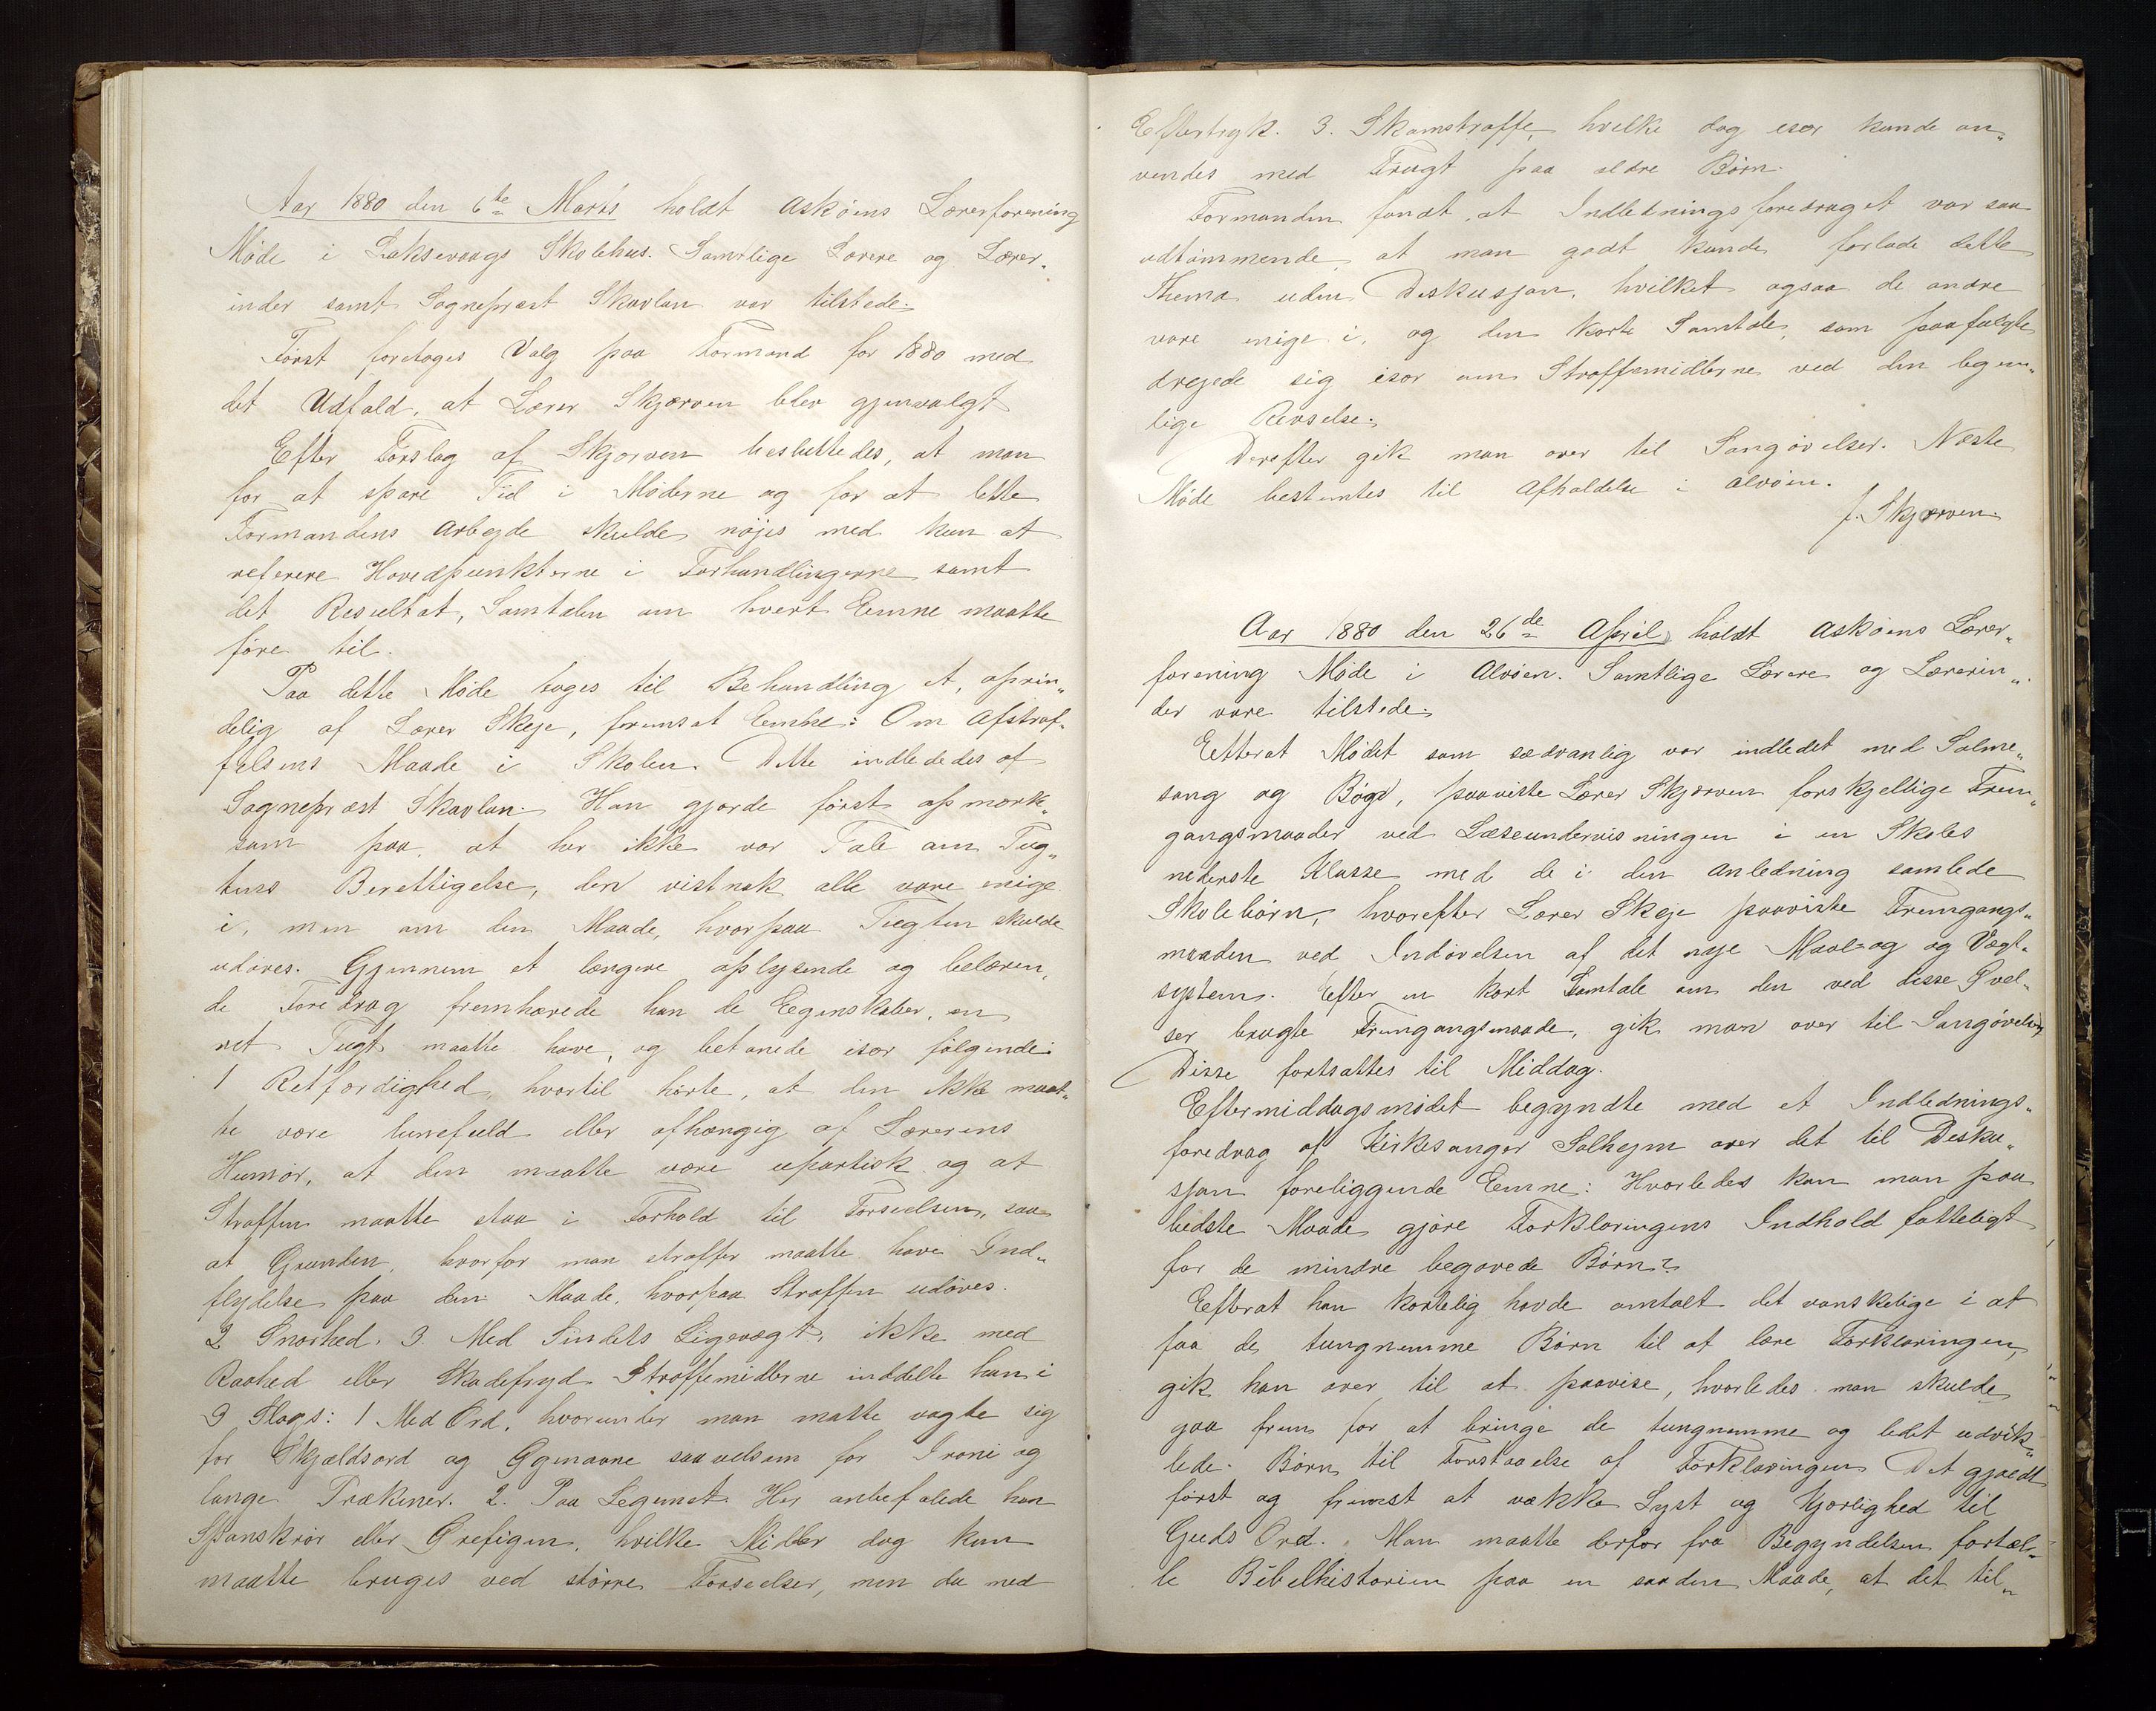 Aar 1880 den 6te Marts holdt Askøens Lærerforening
Møde i Laksevaags Skolehus. Samtlige Lærere og Lærer„
inder samt Sognepræst Skavlan var tilstede.
Først foretoges Valg paa Formand for 1880 med
det Udfald, at Lærer Skjærven blev gjenvalgt
Efter Forslag af Skjærven besluttedes, at man
for at spare Tid i Møderne og for at lette
Formandens Arbejde skulde nøjes med kun at
referere Hovedpunkterne i Forhandlingerne samt
det Resultat, Samtalen om hvert Emne maatte
føre til.
Paa dette Møde toges til Behandling et, oprin„
delig af Lærer Skeje, fremsat Emne: Om Afstraf„
felsens Maade i Skolen. Dette indlededes af
Sognepræst Skavlan. Han gjorde først opmærk„
som paa, at her ikke var Tale om Tug„
tens Berettigelse, den vistnok alle vare enige
i, men om den Maade, hvorpaa Tugten skulde
udøves. Gjennem et længere oplysende og belæren„
de Foredrag fremhævede han de Egenskaber, en
ret Tugt maatte have, og betonede især følgende:
1 Retfærdighed, hvortil hørte, at den ikke maat„
te være lunefuld eller afhængig af Lærerens
Humør, at den maatte være upartisk og at
Straffen maatte staa i Forhold til Forseelsen, saa
at Grunden, hvorfor man straffer maatte have Ind„
flydelse paa den Maade, hvorpaa Straffen udøves.
2 Snarhed. 3. Med Sindets Ligevægt, ikke med
Raahed eller Skadefryd. Straffemidlerne inddelte han i
3 Slags: 1 Med Ord, hvorunder man matte vogte sig
for Skjældsord og Øgenavne saavelsom for Ironi og
lange Prækener. 2. Paa Legemet. Her anbefalede han
Spanskrør eller Ørefigen, hvilke Midler dog kun
maatte bruges ved større Forseelser, men da med
Eftertryk. 3. Skamstraffe, hvilke dog især kunde an„
vendes med Frugt paa ældre Børn.
Formanden fandt, at Indledningsforedraget var saa
udtømmende, at man godt kunde forlade dette
Thema uden Diskusjon, hvilket ogsaa de andre
vare enige i, og den korte Samtale, som paafulgte
drejede sig især om Straffemidlerne ved den legem„
lige Revselse.
Derefter gik man over til Sangøvelser. Næste
Møde bestemtes til Afholdelse i Alvøen.
J. Skjærven.
Aar 1880 den 26de April holdt Askøens Lærer„
forening Møde i Alvøen. Samtlige Lærere og Lærerin„
der vare tilstede.
Efterat Mødet som sædvanlig var indledet med Salme„
sang og Bøn, paaviste Lærer Skjærven forskjellige Frem„
gangsmaader ved Læseundervisningen i en Skoles
nederste Klasse med de i den Anledning samlede
Skolebørn, hvorefter Lærer Skeje paaviste Fremgangs„
maaden ved Indøvelsen af det nye Maal og og Vægt„
system. Efter en kort Samtale om den ved disse Øvel„
ser brugte Fremgangsmaade, gik man over til Sangøvelser
Disse fortsattes til Middag.
Eftermiddagsmødet begyndte med et Indlednings„
foredrag af Kirkesanger Solhejm over det til Disku„
sjon foreliggende Emne: Hvorledes kan man paa
bedste Maade gjøre Forklaringens Indhold fatteligt
for de mindre begavede Børn?
Efterat han kortelig havde omtalt det vanskelige i at
faa de tungnemme Børn til at lære Forklaringen,
gik han over til at paavise, hvorledes man skulde
gaa frem for at bringe de tungnemme og lidet udvik„
lede Børn til Forstaaelse af Forklaringen. Det gjældt
først og fremst at vække Lyst og Kjærlighed til
Guds Ord. Man maatte derfor fra Begyndelsen fortæl„
le Bibelhistorien paa en saadan Maade, at det til„